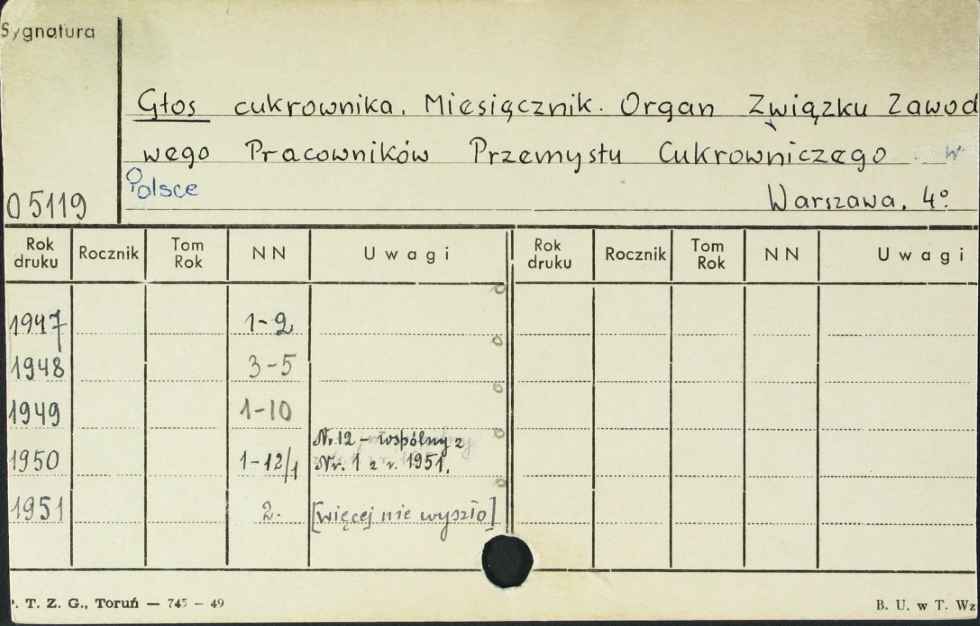 Sygnatura
Głos cukrownika. Miesięcznik. Organ Związku Zawod
wego Pracowników Przemysłu Cukrowniczego w
Polsce
Warszawa. 4º
05119
Rok druku Rocznik Tom Rok NN Uwagi Rok druku Rocznik Tom Rok NN Uwagi
1947 1-2
1948 3-5
1949 1-10
1950 1-12/1 Nr. 12 - wspólny z
Nr. 1 z r. 1951.
1951 2. [więcej nie wyszło]
. T. Z. G., Toruń — 745 - 49
B. U. w T. Wz